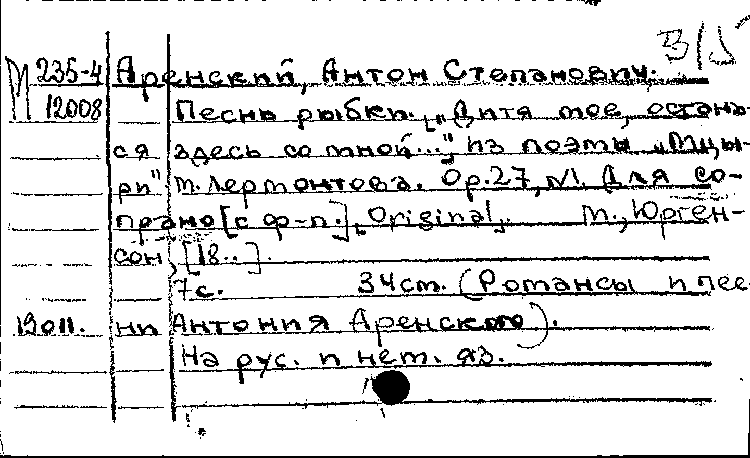 В/5
М 235-4 Аренский, Антон Степанович.
12008 Песнь рыбки. „Дитя мое, остань-
ся здесь со мной...", из поэмы „Мцы-
ри" М. Лермонтова. Op. 27, №1. Для со-
прано [с ф-п.]. Original. М., Юрген-
сон, [18..].
7 с. 34 см. (Романсы и пес
12011. ни Антония Аренского).
На рус. и нем. яз.